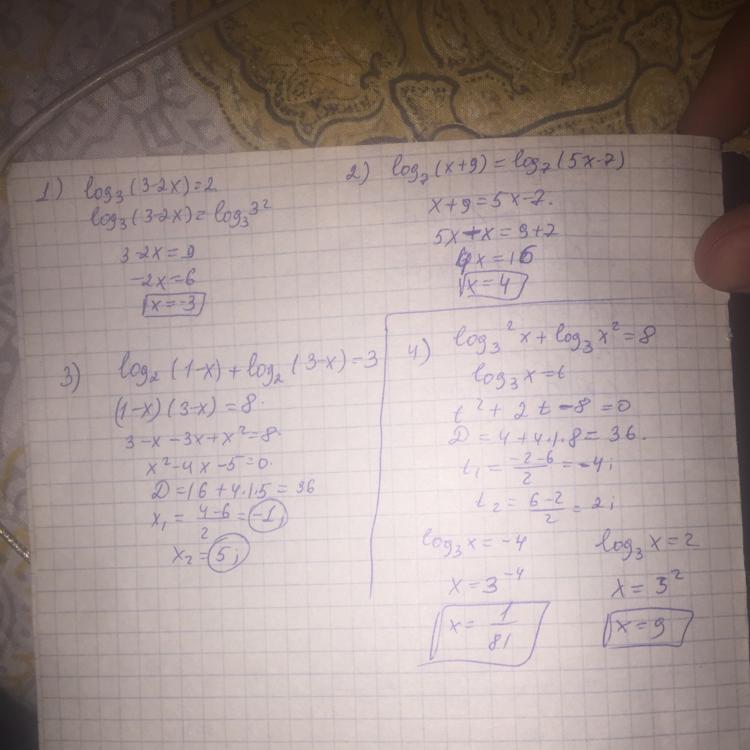 1) log₃(3-2x)=2
log₃(3-2x)=log₃3²
3-2x=9
-2x=6
x=-3
2) log₇(x+9)=log₇(5x-7)
x+9=5x-7.
5x-x=9+7
4x=16
x=4
3) log₂(1-x)+log₂(3-x)=3
(1-x)(3-x)=8.
3-x-3x+x²=8.
x²-4x-5=0.
D=16+4·1·5=36
x₁=\frac{4-6}{2}=-1;
x₂=5;
4) log₃²x+log₃x²=8
log₃x=t
t²+2t-8=0
D=4+4·1·8=36.
t₁=\frac{-2-6}{2}=-4;
t₂=\frac{6-2}{2}=2;
log₃x=-4 log₃x=2
x=3⁻⁴ x=3²
x=\frac{1}{81} x=9